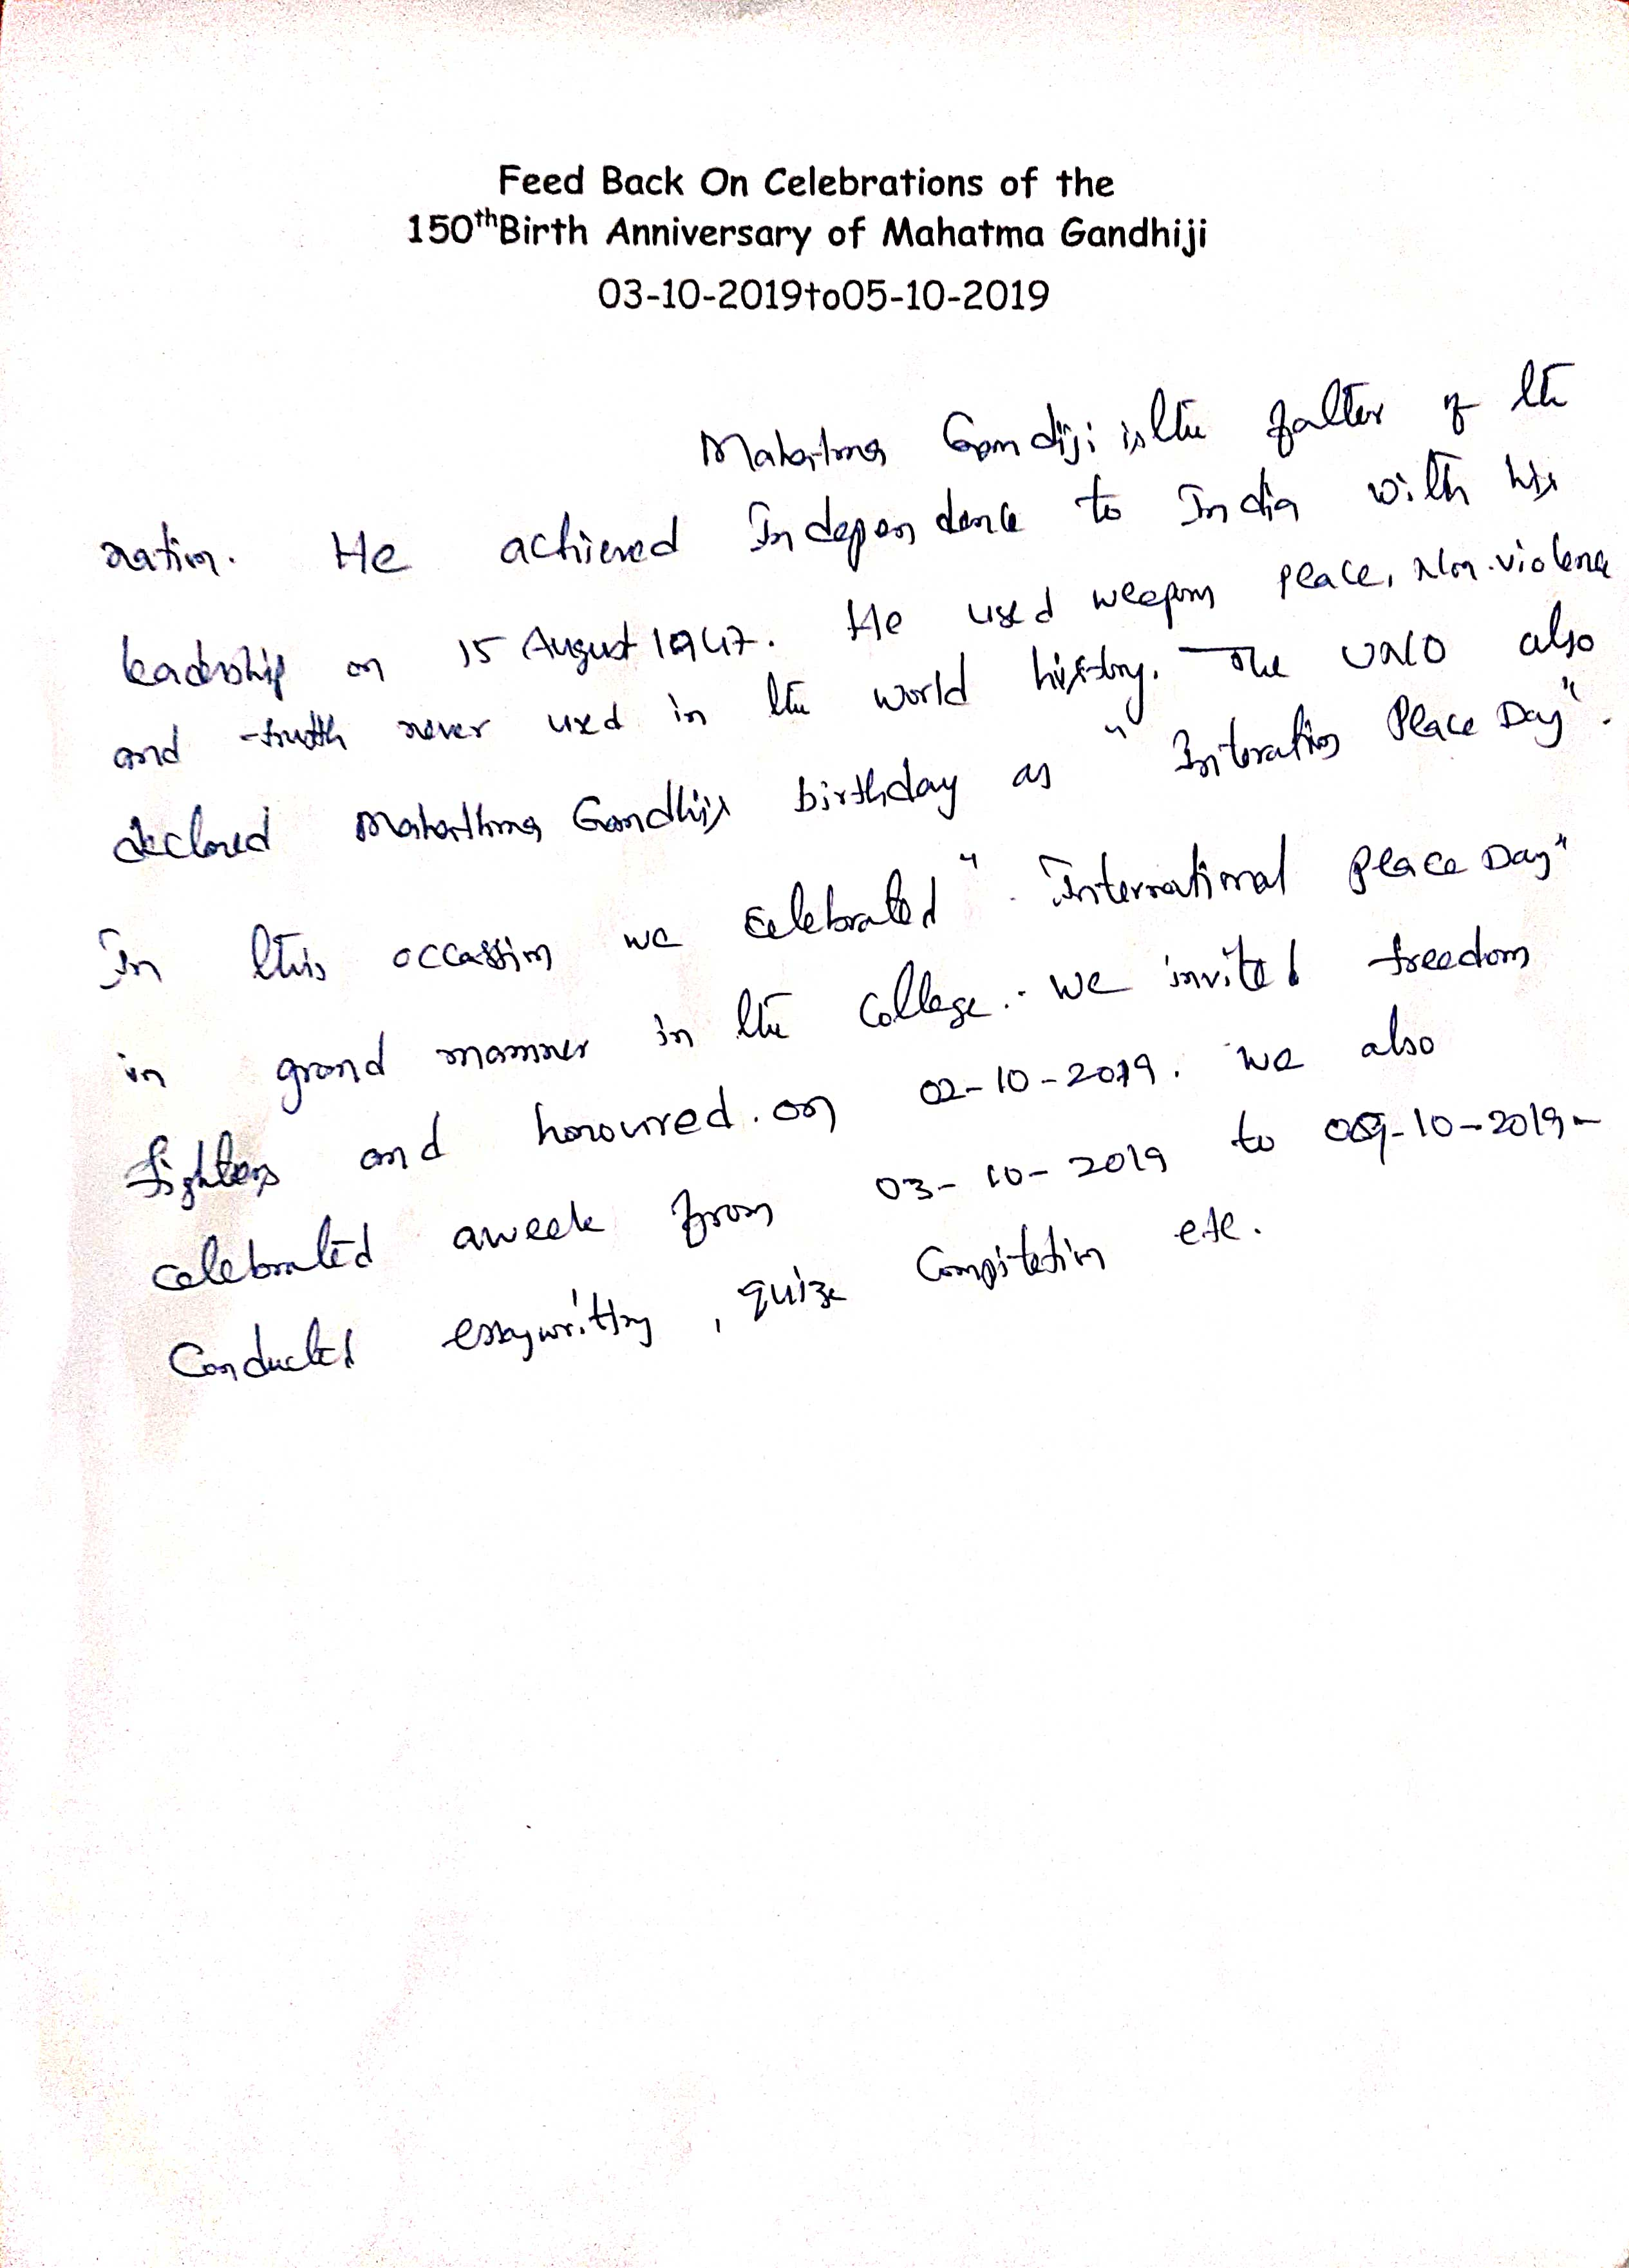 Feed Back On Celebrations of the
150thBirth Anniversary of Mahatma Gandhiji
03-10-2019to05-10-2019
Mahatma Gandiji is the father of the
nation. He achieved Independence to India with his
leadership on 15 August 1947. He used weapons peace, Non-violence
and truth never used in the world history. The UNO also
declared Mahathma Gandhijis birthday as "Interation Peace Day".
In this occassion we celebrated "International peace Day"
in grand manner in the college. we invited freedom
fighters and honoured. on 02-10-2019. we also
celebrated aweek from 03-10-2019 to 09-10-2019-
Conducted essaywritting, quize Compitation etc.